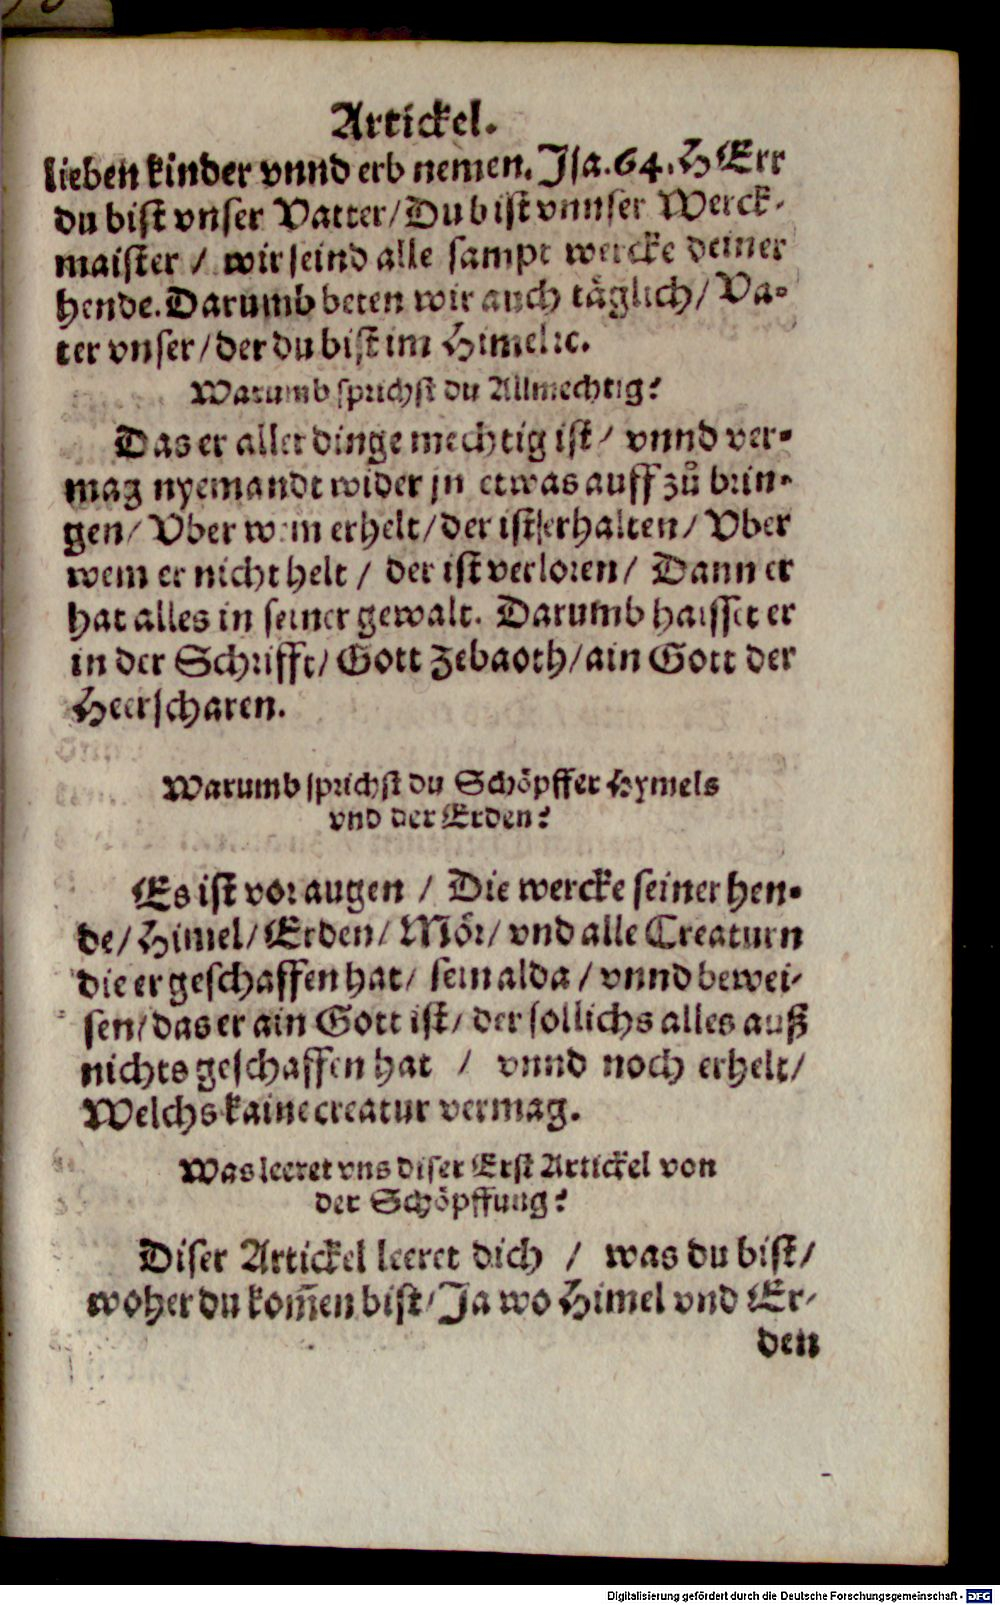 Artickel.
lieben kinder vnnd erb nemen. Jsa. 64. HErr
du bist vnser Vatter / Du bist vnnser Werck-
maister / wir seind alle sampt wercke deiner
hende. Darumb beten wir auch täglich / Va-
ter vnser / der du bist im Himel ꝛc.
Warumb sprichst du Allmechtig?
Das er aller dinge mechtig ist / vnnd ver-
mag nyemandt wider jn etwas auff zů brin-
gen / Vber wem er helt / der ist erhalten / Vber
wem er nicht helt / der ist verloren / Dann er
hat alles in seiner gewalt. Darumb haisset er
in der Schrifft / Gott Zebaoth / ain Gott der
Heerscharen.
Warumb sprichst du Schöpffer Hymels
vnd der Erden?
Es ist vor augen / Die wercke seiner hen-
de / Himel / Erden / Mör / vnd alle Creaturn
die er geschaffen hat / sein alda / vnnd bewei-
sen / das er ain Gott ist / der sollichs alles auß
nichts geschaffen hat / vnnd noch erhelt /
Welchs kaine creatur vermag.
Was leeret vns diser Erst Artickel von
der Schöpffung?
Diser Artickel leeret dich / was du bist /
woher du kom̄en bist / Ja wo Himel vnd Er-
den
Digitalisierung gefördert durch die Deutsche Forschungsgemeinschaft - DFG